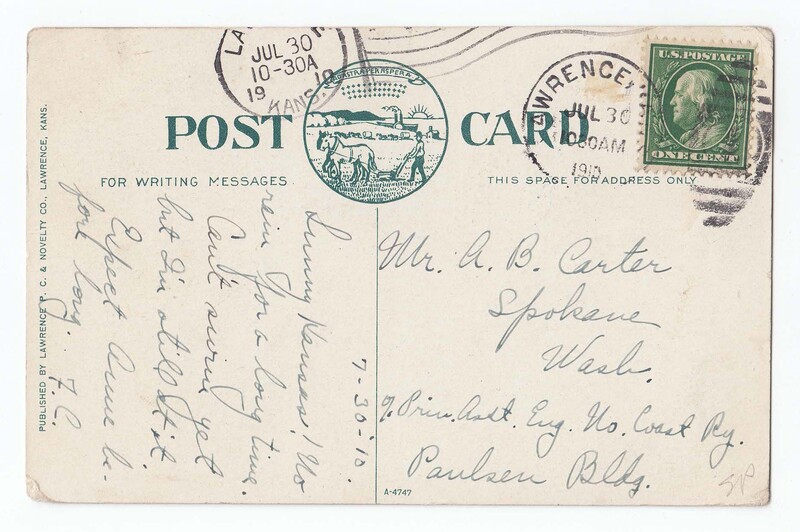 LA
JUL 30
10-30A
19 10
KANS
AD ASTRA PER ASPERA
POST CARD
U.S. POSTAGE
ONE CENT
WRENCE,
JUL 30
1030AM
1910
FOR WRITING MESSAGES
THIS SPACE FOR ADDRESS ONLY
PUBLISHED BY LAWRENCE P. C. & NOVELTY CO., LAWRENCE, KANS.
7-30-'10.
Sunny Kansas! No
rain for a long time.
Can't swim yet
but I'm still at it
Expect Anne be-
fore long. F.C.
Mr. A. B. Carter
Spokane
Wash.
% Prin. Asst. Eng. No. Coast Ry.
Paulsen Bldg.
A-4747